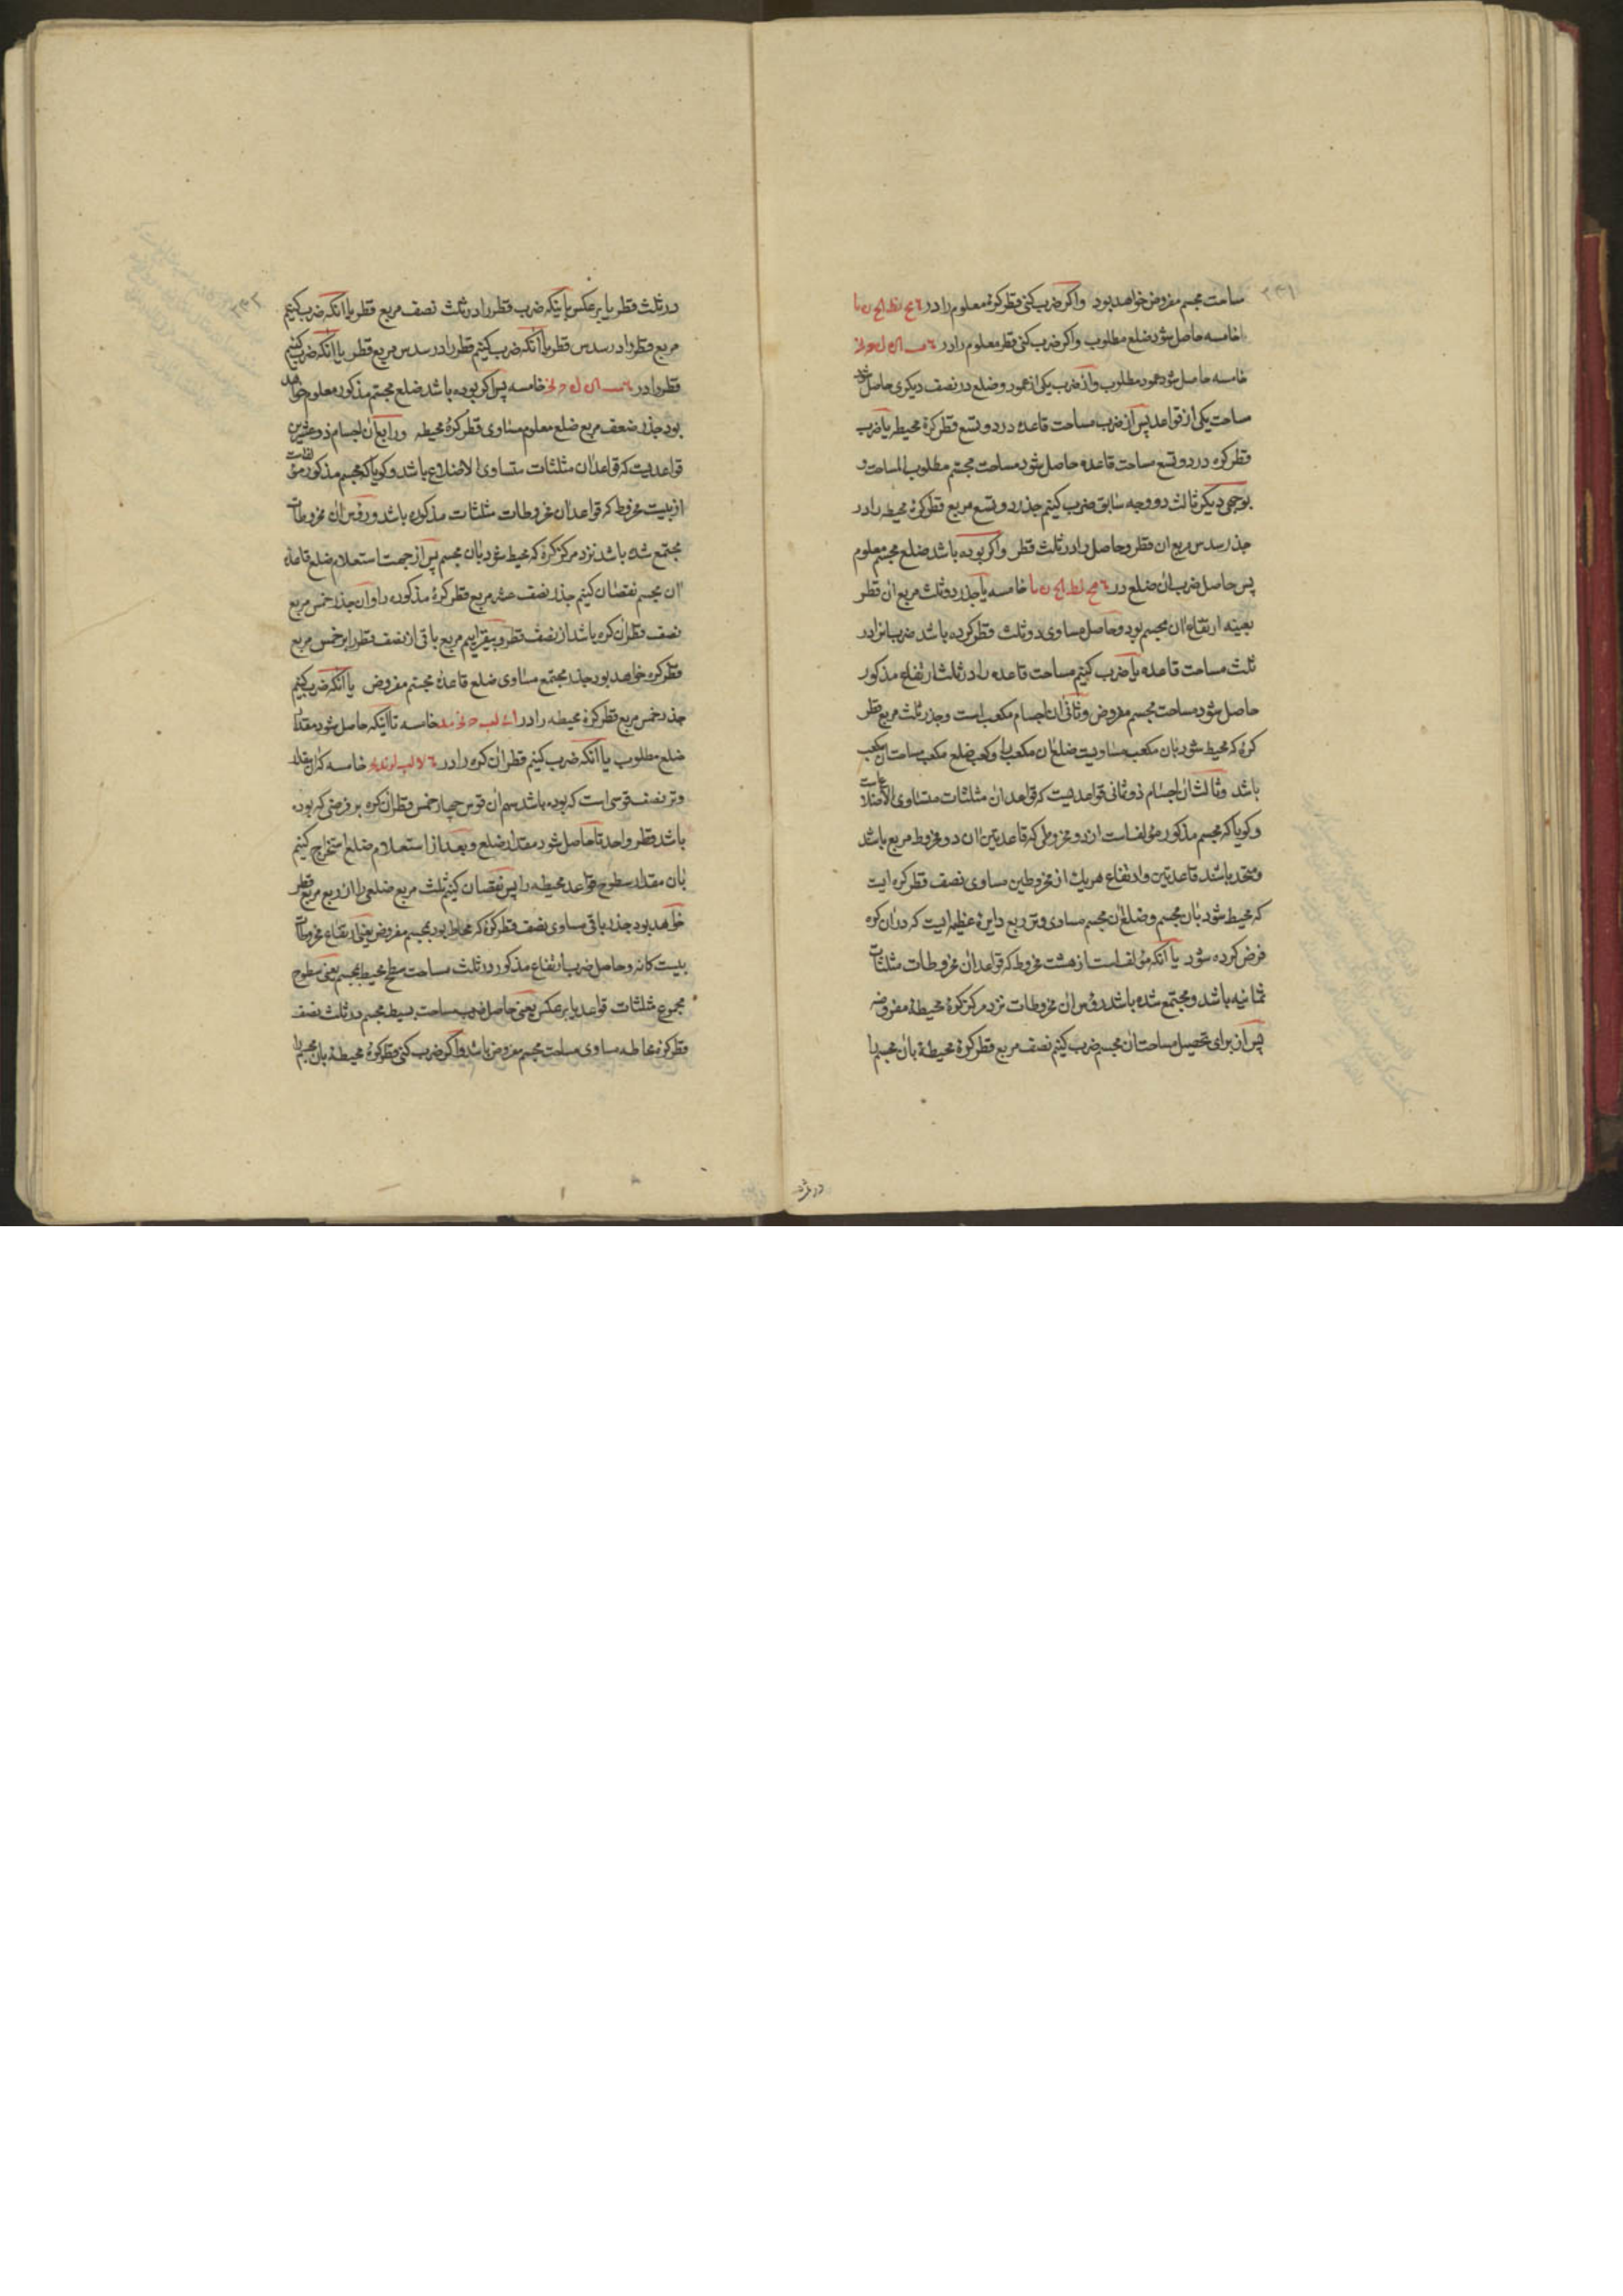 ساحت مجسم مفروض خواهد بود واکر ضرب کنی قطر کرهٔ معلوم را در
خامسه حاصل شود ضلع مطلوب واکر ضرب کنی قطر معلوم را در
خامسه حاصل شود عمود مطلوب واز ضرب یکی از عمود وضلع در نصف دیکری حاصل شود
ساحت یکی از قواعد پس از ضرب مساحت قاعده در دو تسع قطر کرهٔ محیطه یا ضرب
قطر کره در دو تسع ساحت قاعده حاصل شود مساحت مجسم مطلوب المساحت و
بوجهی دیکر ثالث دو وجه سابق ضرب کنیم جذر دو تسع مربع قطر کرهٔ محیطه را در
جذر سدس مربع ان قطر وحاصل را در ثلث قطر واکر بوده باشد ضلع مجسم معلوم
پس حاصل ضرب ان ضلع در خامسه یا جذر دو ثلث مربع ان قطر
بعینه ارتفاع ان مجسم بود وحاصل مساوی دو ثلث قطر کرده باشد ضرب انرا در
ثلث مساحت قاعده یا ضرب کنیم مساحت قاعده را در ثلث ارتفاع مذکور
حاصل شود مساحت مجسم مفروض وثانی ان اجسام مکعب است وجذر ثلث مربع قطر
کرهٔ که محیط شود بان مکعب مساویست ضلع ان مکعب را وکعب ضلع مکعب مساحت ان مکعب
باشد وثالث ان اجسام ذو ثمانی قواعدیست که قواعد ان مثلثات متساوی الاضلاعست
وکویا که مجسم مذکور مؤلف است از دو مخروطی که قاعدتین ان دو مخروط مربع باشد
ومتحد باشد قاعدتین وارتفاع هریک از مخروطین مساوی نصف قطر کره ایست
که محیط شود بان مجسم وضلع ان مجسم مساوی وتر ربع دایرهٔ عظیمه ایست که در ان کره
فرض کرده شود یا آنکه مؤلف است از هشت مخروط که قواعد ان مخروطات مثلثات
ثمانیه باشد ومجتمع شده باشد رؤس ان مخروطات نزد مرکز کرهٔ محیطهٔ مفروضه
پس از برای تحصیل مساحت ان مجسم ضرب کنیم نصف مربع قطر کرهٔ محیطهٔ بان مجسم را
در ثلث قطر یا برعکس یا اینکه ضرب قطر را در ثلث نصف مربع قطر یا انکه ضرب کنیم
مربع قطر را در سدس قطر یا آنکه ضرب کنیم قطر را در سدس مربع قطر یا انکه ضرب کنیم
قطر را در خامسه پس اکر بوده باشد ضلع مجسم مذکور معلوم خواهد
بود جذر ضعف مربع ضلع معلوم مساوی قطر کرهٔ محیطه ورابع ان اجسام ذو عشرین
قواعدیست که قواعد ان مثلثات متساوی الاضلاع باشد وکویا که مجسم مذکور مؤلفست
از بیست مخروط که قواعد ان مخروطات مثلثات مذکوره باشد ورؤس ان مخروطات
مجتمع شده باشد نزد مرکز کرهٔ که محیط شود بان مجسم پس از جهت استعلام ضلع قاعدهٔ
ان مجسم نقصان کنیم جذر نصف عشر مربع قطر کرهٔ مذکوره را وان جذر خمس مربع
نصف قطر ان کره باشد از نصف قطر وبیفزاییم مربع باقی از نصف قطر را بر خمس مربع
قطر کره خواهد بود جذر مجتمع مساوی ضلع قاعدهٔ مجسم مفروض یا آنکه ضرب کنیم
جذر خمس مربع قطر کرهٔ محیطه را در خامسه تا اینکه حاصل شود مقدار
ضلع مطلوب یا آنکه ضرب کنیم قطر ان کره را در خامسه که ان مقدار
وتر نصف قوسی است که بوده باشد سهم ان قوس چهار خمس قطر ان کره بر فرضی که بوده
باشد قطر واحد تا حاصل شود مقدار ضلع وبعد از استعلام ضلع استخراج کنیم
بان مقدار سطوح قواعد محیطه را پس نقصان کنیم ثلث مربع ضلعی را از ربع مربع قطر
خواهد بود جذر باقی مساوی نصف قطر کرهٔ که محاط بود بمجسم مفروض یعنی ارتفاع مخروطات
بیست کانه وحاصل ضرب ارتفاع مذکور در ثلث مساحت سطح محیط بمجسم یعنی سطوح
مجموع مثلثات قواعد یا برعکس یعنی حاصل ضرب مساحت بسیط مجسم در ثلث نصف
قطر کرهٔ محاطه مساوی مساحت مجسم مفروض باشد واکر ضرب کنی قطر کرهٔ محیطهٔ بان مجسم را
در ثلث